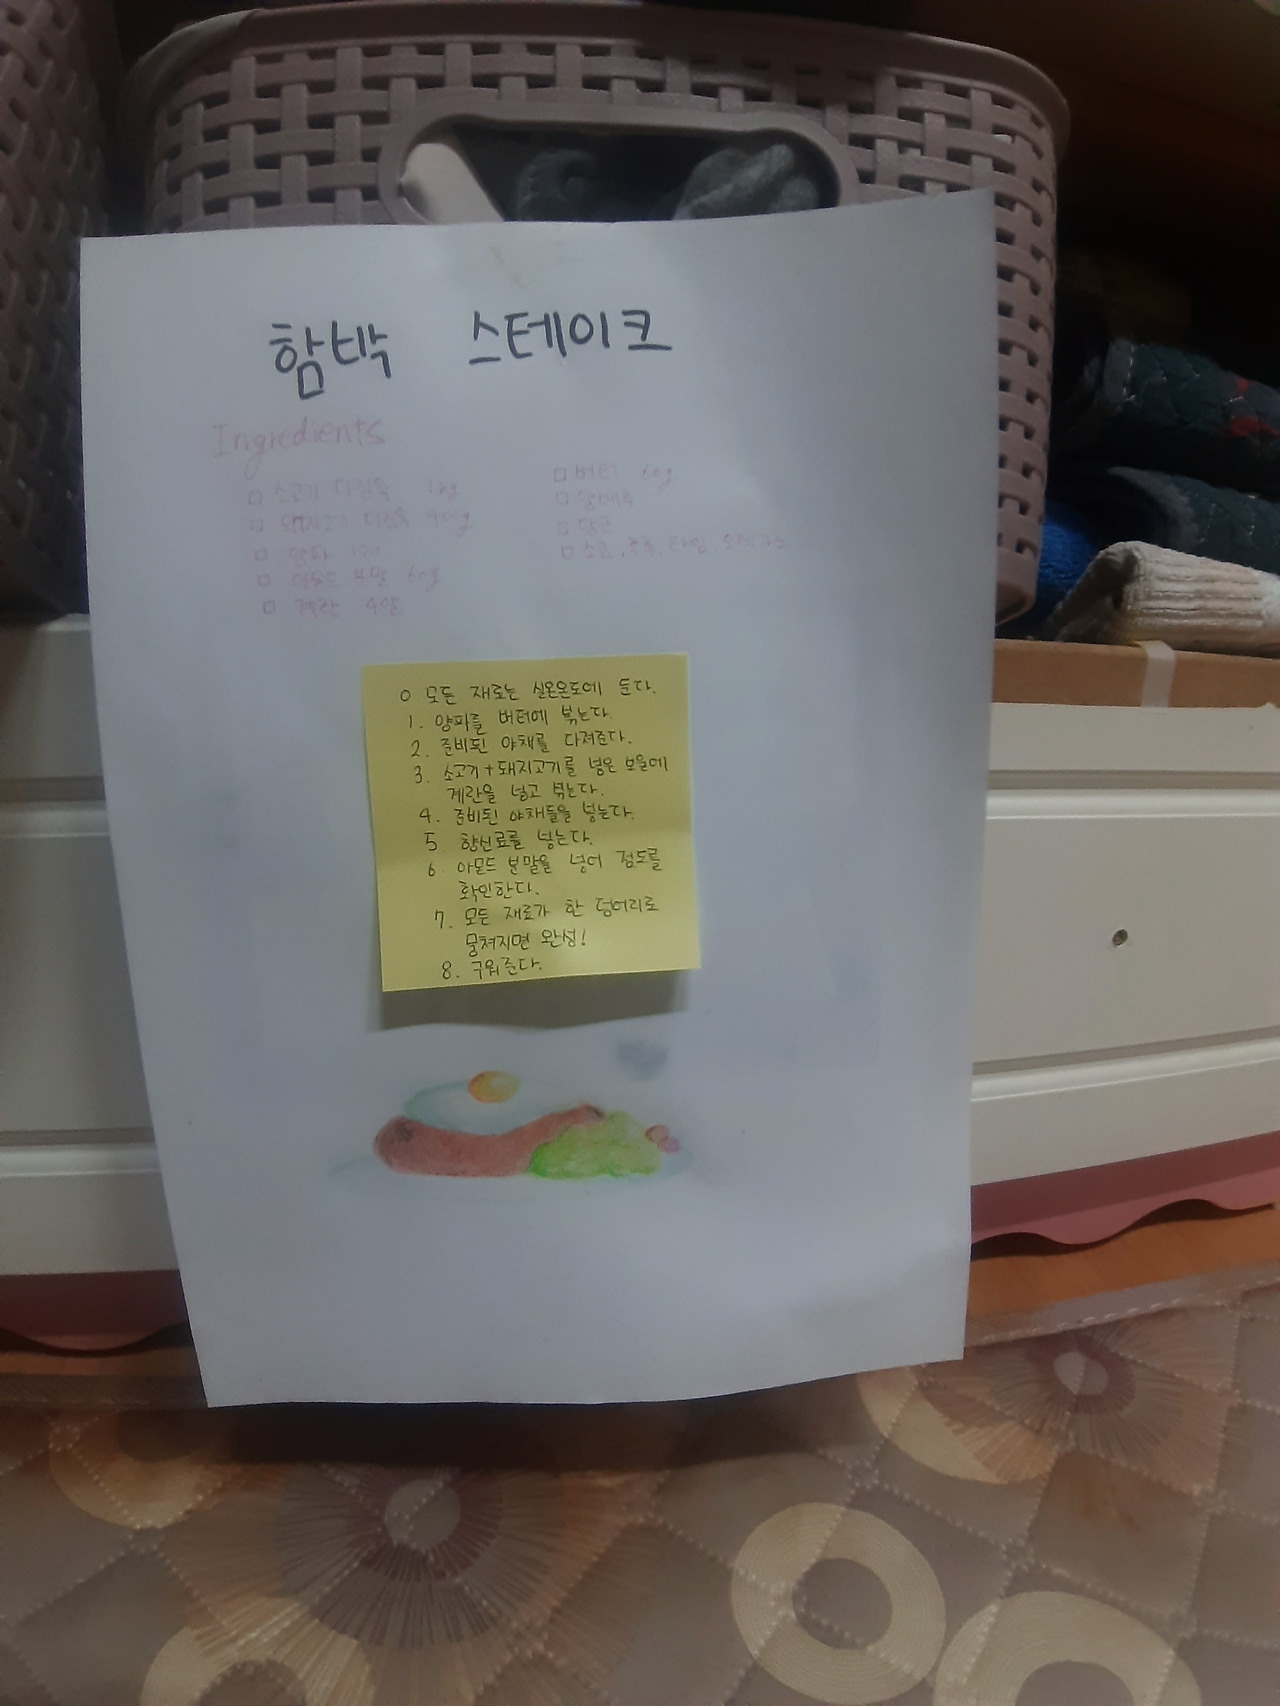 함박 스테이크
Ingredients
□ 소고기 다짐육 1kg
□ 돼지고기 다짐육 400g
□ 양파 1개
□ 아몬드 분말 60g
□ 계란 4알
□ 버터 60g
□ 양배추
□ 당근
□ 소금, 후추, 타임, 오레가노
0 모든 재료는 실온온도에 둔다.
1. 양파를 버터에 볶는다.
2. 준비된 야채를 다져준다.
3. 소고기+돼지고기를 넣은 보울에
계란을 넣고 볶는다.
4. 준비된 야채들을 넣는다.
5. 향신료를 넣는다.
6. 아몬드 분말을 넣어 점도를
확인한다.
7. 모든 재료가 한 덩어리로
뭉쳐지면 완성!
8. 구워준다.